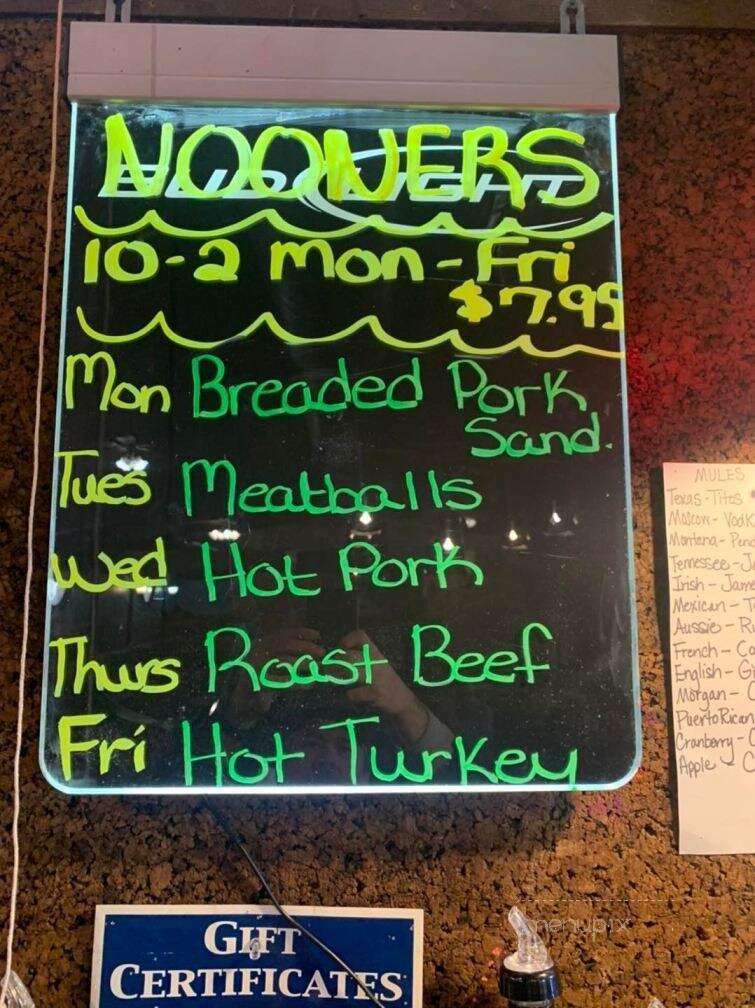 NOONERS
BUD LIGHT
10-2 Mon-Fri
$7.95
Mon Breaded Pork
Sand.
Tues Meatballs
Wed Hot Pork
Thurs Roast Beef
Fri Hot Turkey
MULES
Texas-Titos
Moscow-
Montana-
Tennessee-
Irish-
Mexican-
Aussie-
French-
English-
Morgan-
Puerto Rican
Cranberry-
Apple
GIFT
CERTIFICATES
menupix